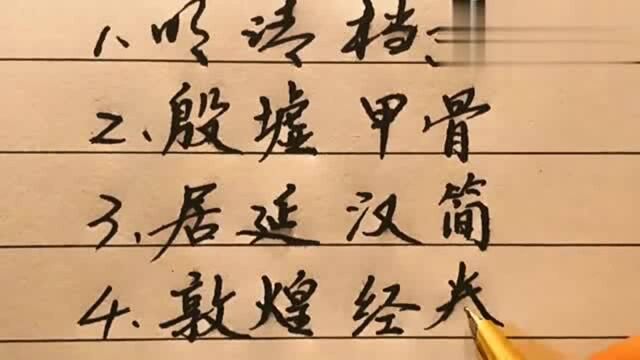 1、明清档
2、殷墟甲骨
3、居延汉简
4、敦煌经